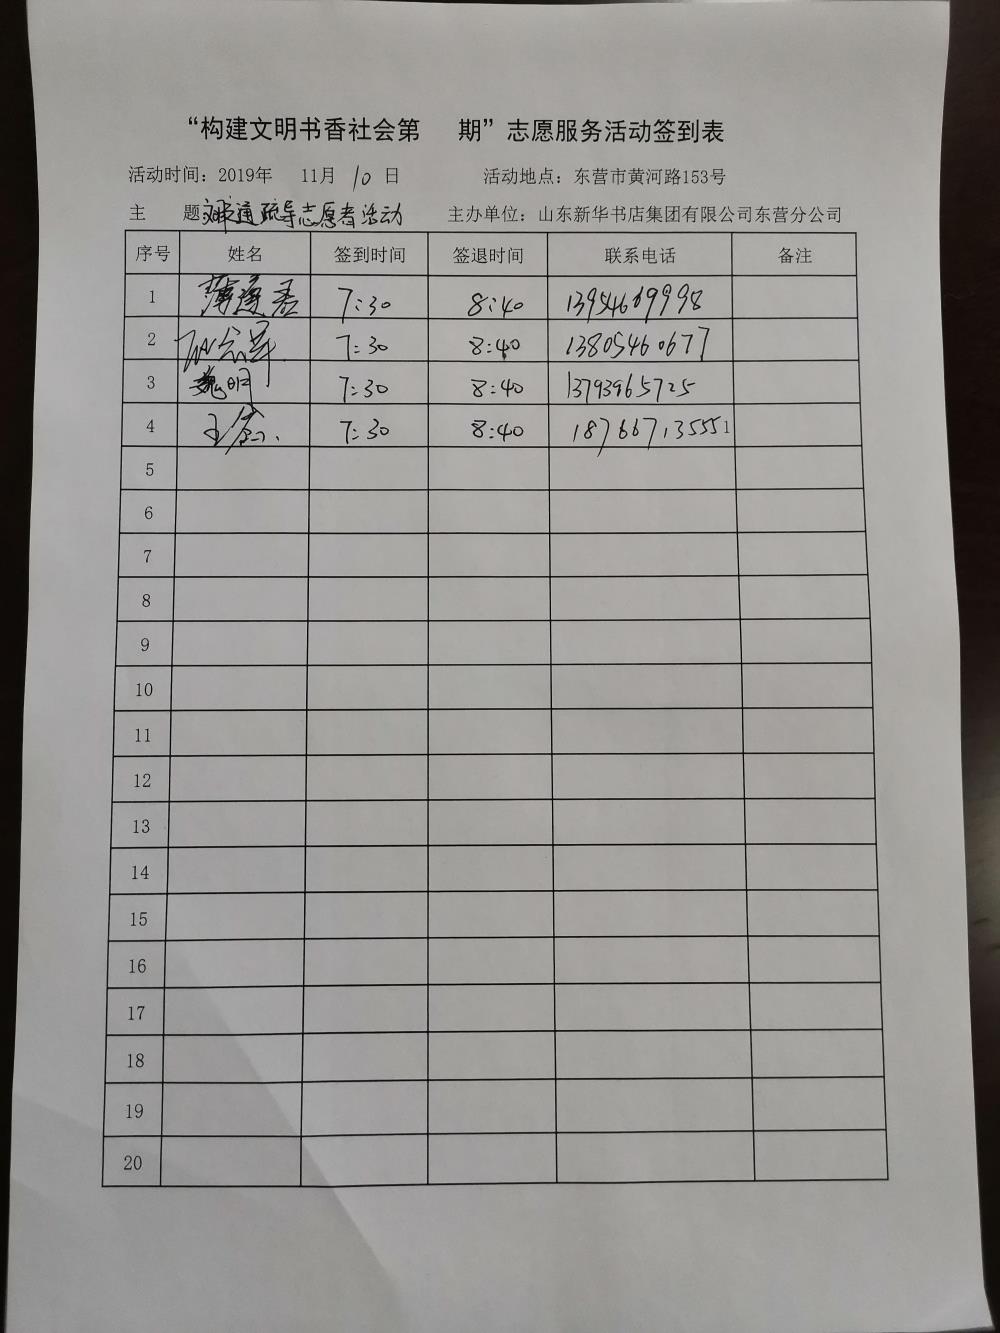 “构建文明书香社会第 期”志愿服务活动签到表
活动时间：2019年 11月 10 日 活动地点：东营市黄河路153号
主 题 通疏导志愿者活动 主办单位：山东新华书店集团有限公司东营分公司
序号 姓名 签到时间 签退时间 联系电话 备注
1 7:30 8:40 13954609998
2 7:30 8:40 13805460677
3 魏明 7:30 8:40 13793965725
4 王 7:30 8:40
5
6
7
8
9
10
11
12
13
14
15
16
17
18
19
20